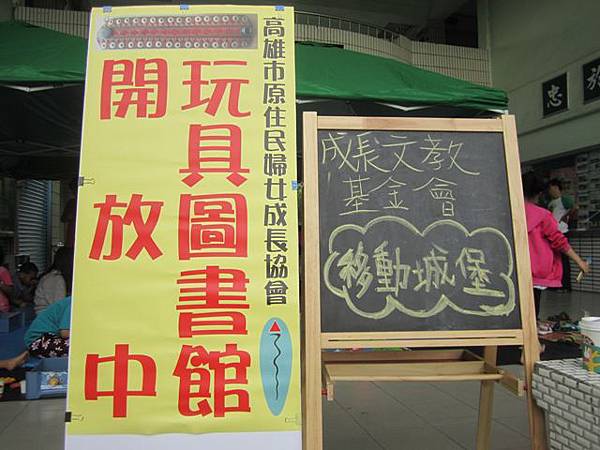 高雄市原住民婦女成長協會
玩具圖書館
開放中
成長文教
基金會
移動城堡
忠
於